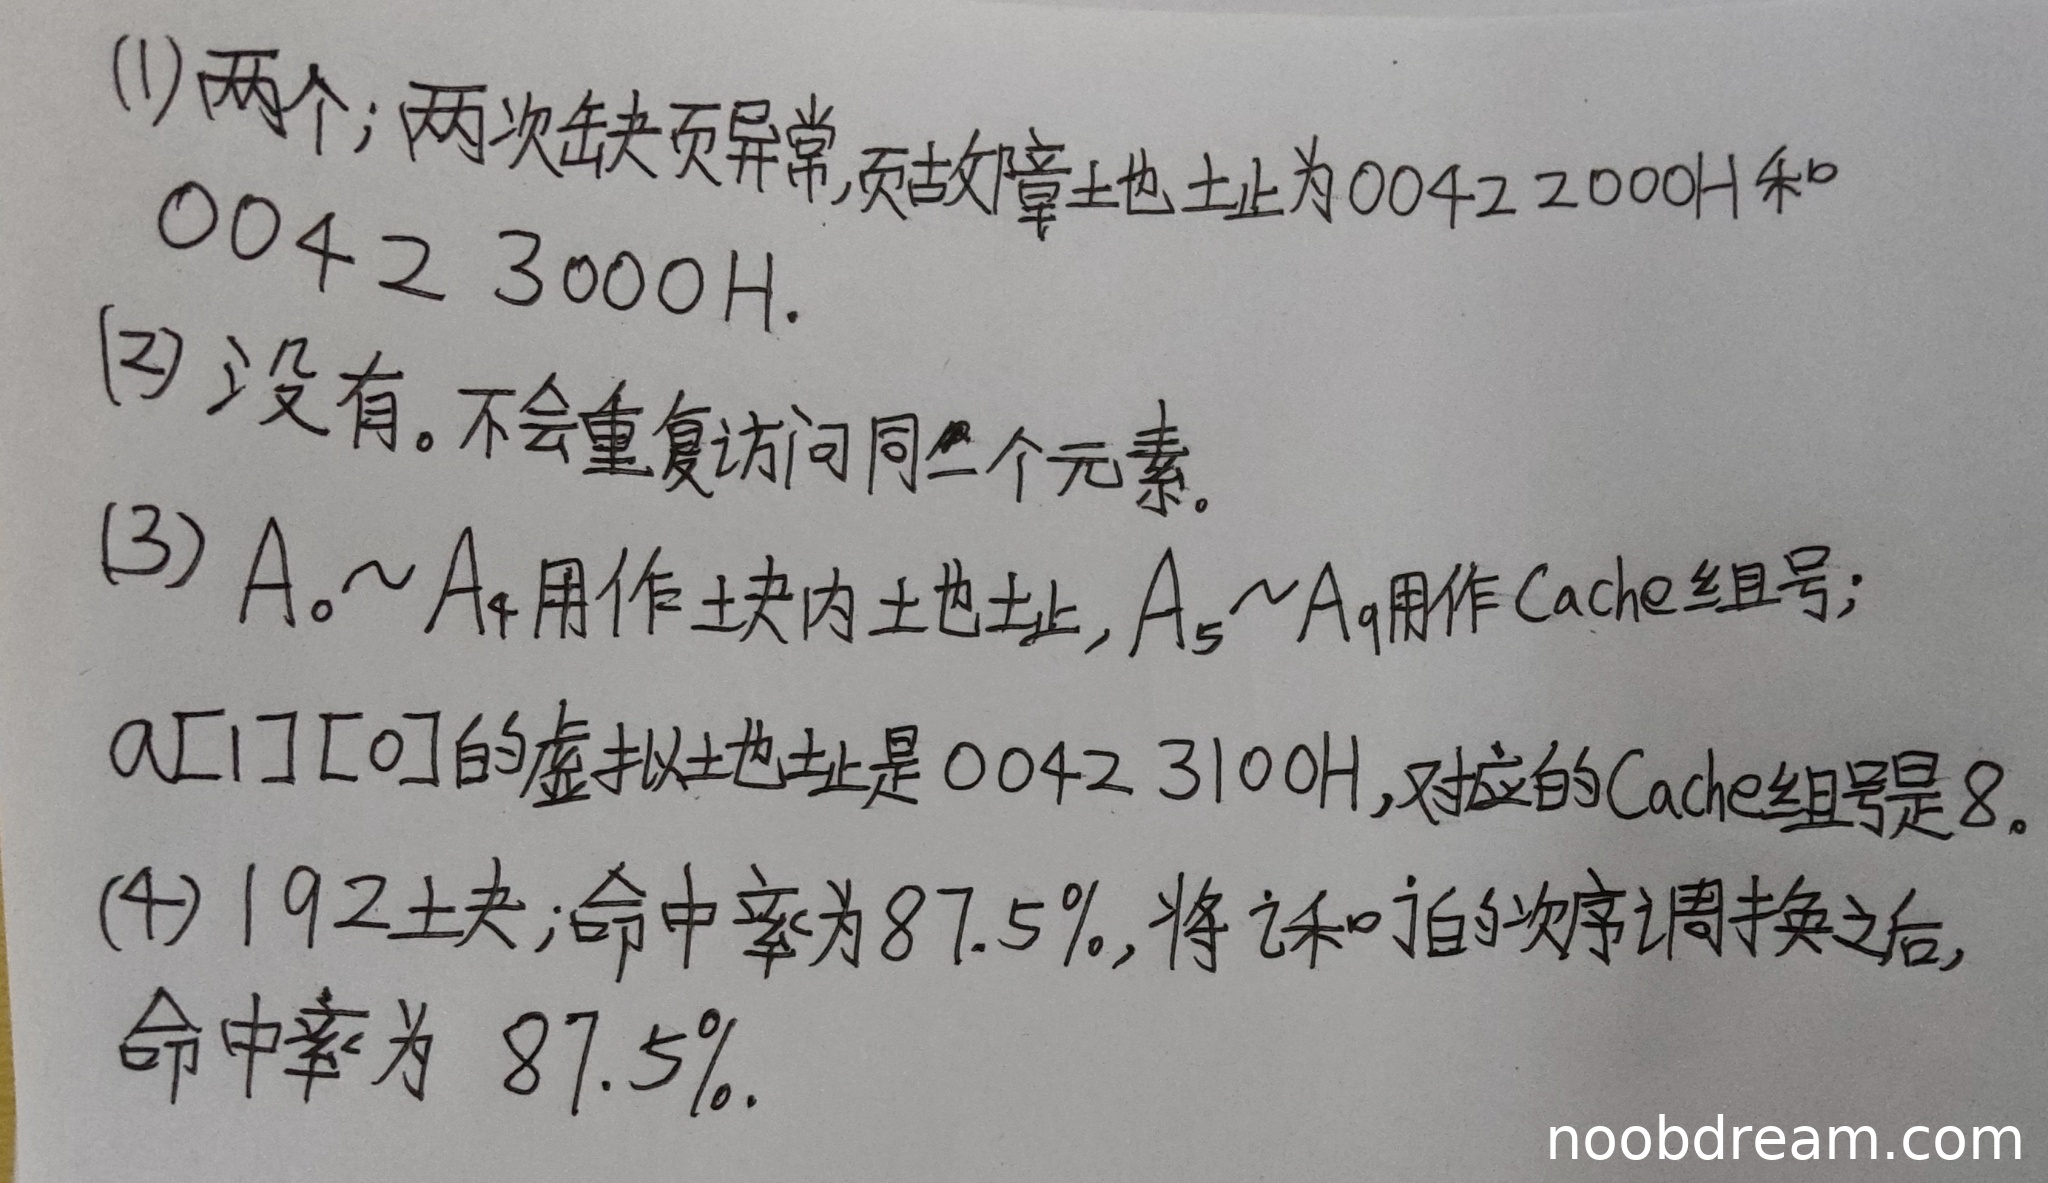 (1) 两个；两次缺页异常，页故障地址为0042 2000H 和
0042 3000H.
(2) 没有。不会重复访问同一个元素。
(3) A₀~A₄用作块内地址，A₅~A₉用作Cache组号；
a[1][0]的虚拟地址是0042 3100H，对应的Cache组号是8。
(4) 192块；命中率为87.5%，将i和j的次序调换之后，
命中率为 87.5%.
noobdream.com